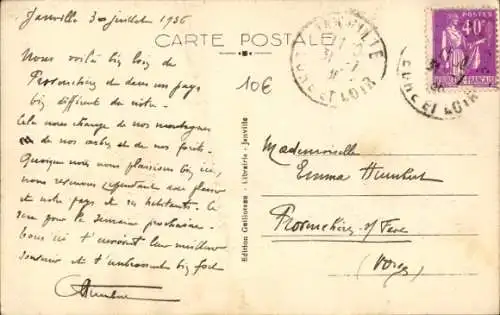 Janville 30 juillet 1936
Nous voilà bien loin de
Provenchères et dans un pays
bien différent du nôtre.
Cela nous change de nos montagnes
de nos arbres et de nos forêts.
Quoique nous nous plaisions bien ici,
nous reverrons cependant avec plaisir
et notre pays et ses habitants. Ce
sera pour la semaine prochaine.
Tous ici t'envoient leur meilleur
souvenir et t'embrassent bien fort
CARTE POSTALE
10€
Edition Guilloteau - Librairie - Janville
JANVILLE
EURE ET LOIR
40c
POSTES
EURE ET LOIR
Mademoiselle
Emma Humbert
Provenchères s/ Fave
(Vosges)